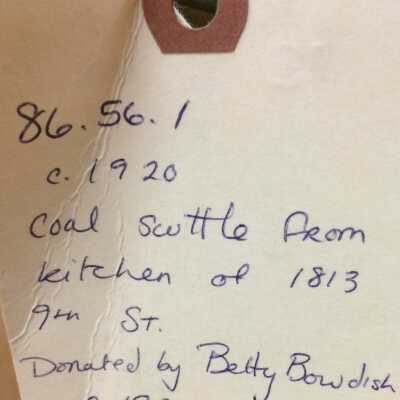 86.56.1
c. 1920
Coal Scuttle from
kitchen of 1813
9th St.
Donated by Betty Bowdish